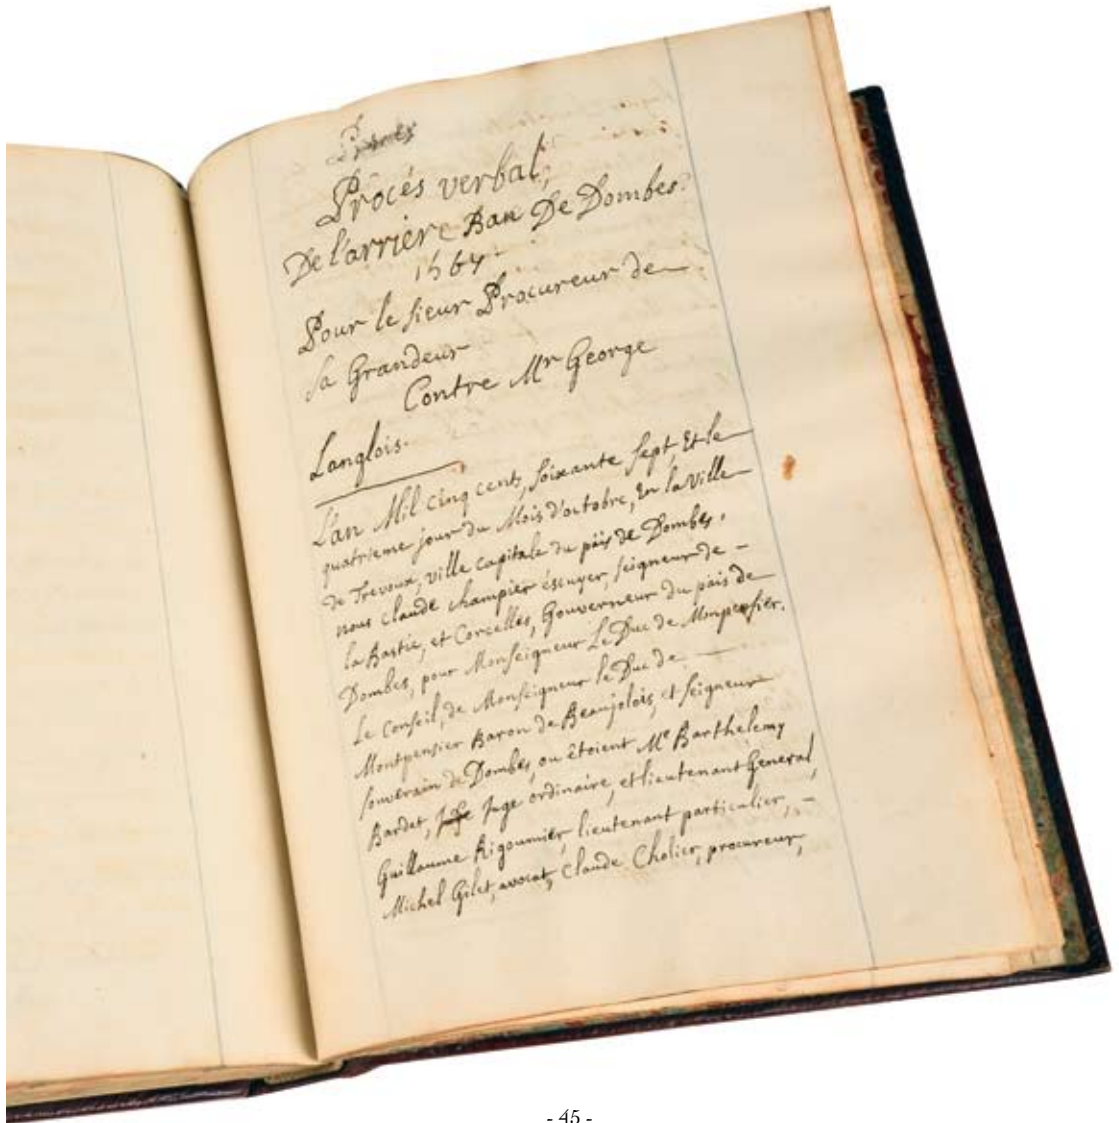 Procès verbal,
De l'arrière Ban De Dombes.
1567.
Pour le sieur Procureur de
sa Grandeur
Contre Mr George
Langlois.
L'an Mil cinq cents, soixante sept, Et le
quatrieme jour du Mois d'octobre, En la ville
de Trevoux, ville capitale du païs de Dombes,
nous Claude champier éscuyer, seigneur de -
la Bastie, et Corcelles, Gouverneur du païs de
Dombes, pour Monseigneur Le Duc de Monpensier.
Le Conseil, de Monseigneur le Duc de
Montpensier Baron de Beaujolois, et seigneur
souverain de Dombes, ou êtoient Me Barthelemy
Bardet, Juge ordinaire, et lieutenant General,
Guillaume Rigoumier, lieutenant particulier, -
Michel Gilet, avocat, Claude Cholier, procureur,
- 45 -